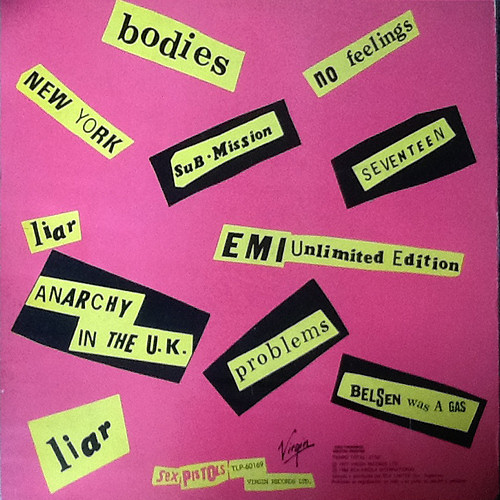 bodies
no feelings
NEW YORK
SuB·Mission
SEVENTEEN
liar
EMI Unlimited Edition
ANARCHY
IN THE U.K.
problems
BELSEN was A GAS
liar
Virgin
SEX PISTOLS TLP-60169 VIRGIN RECORDS LTD.